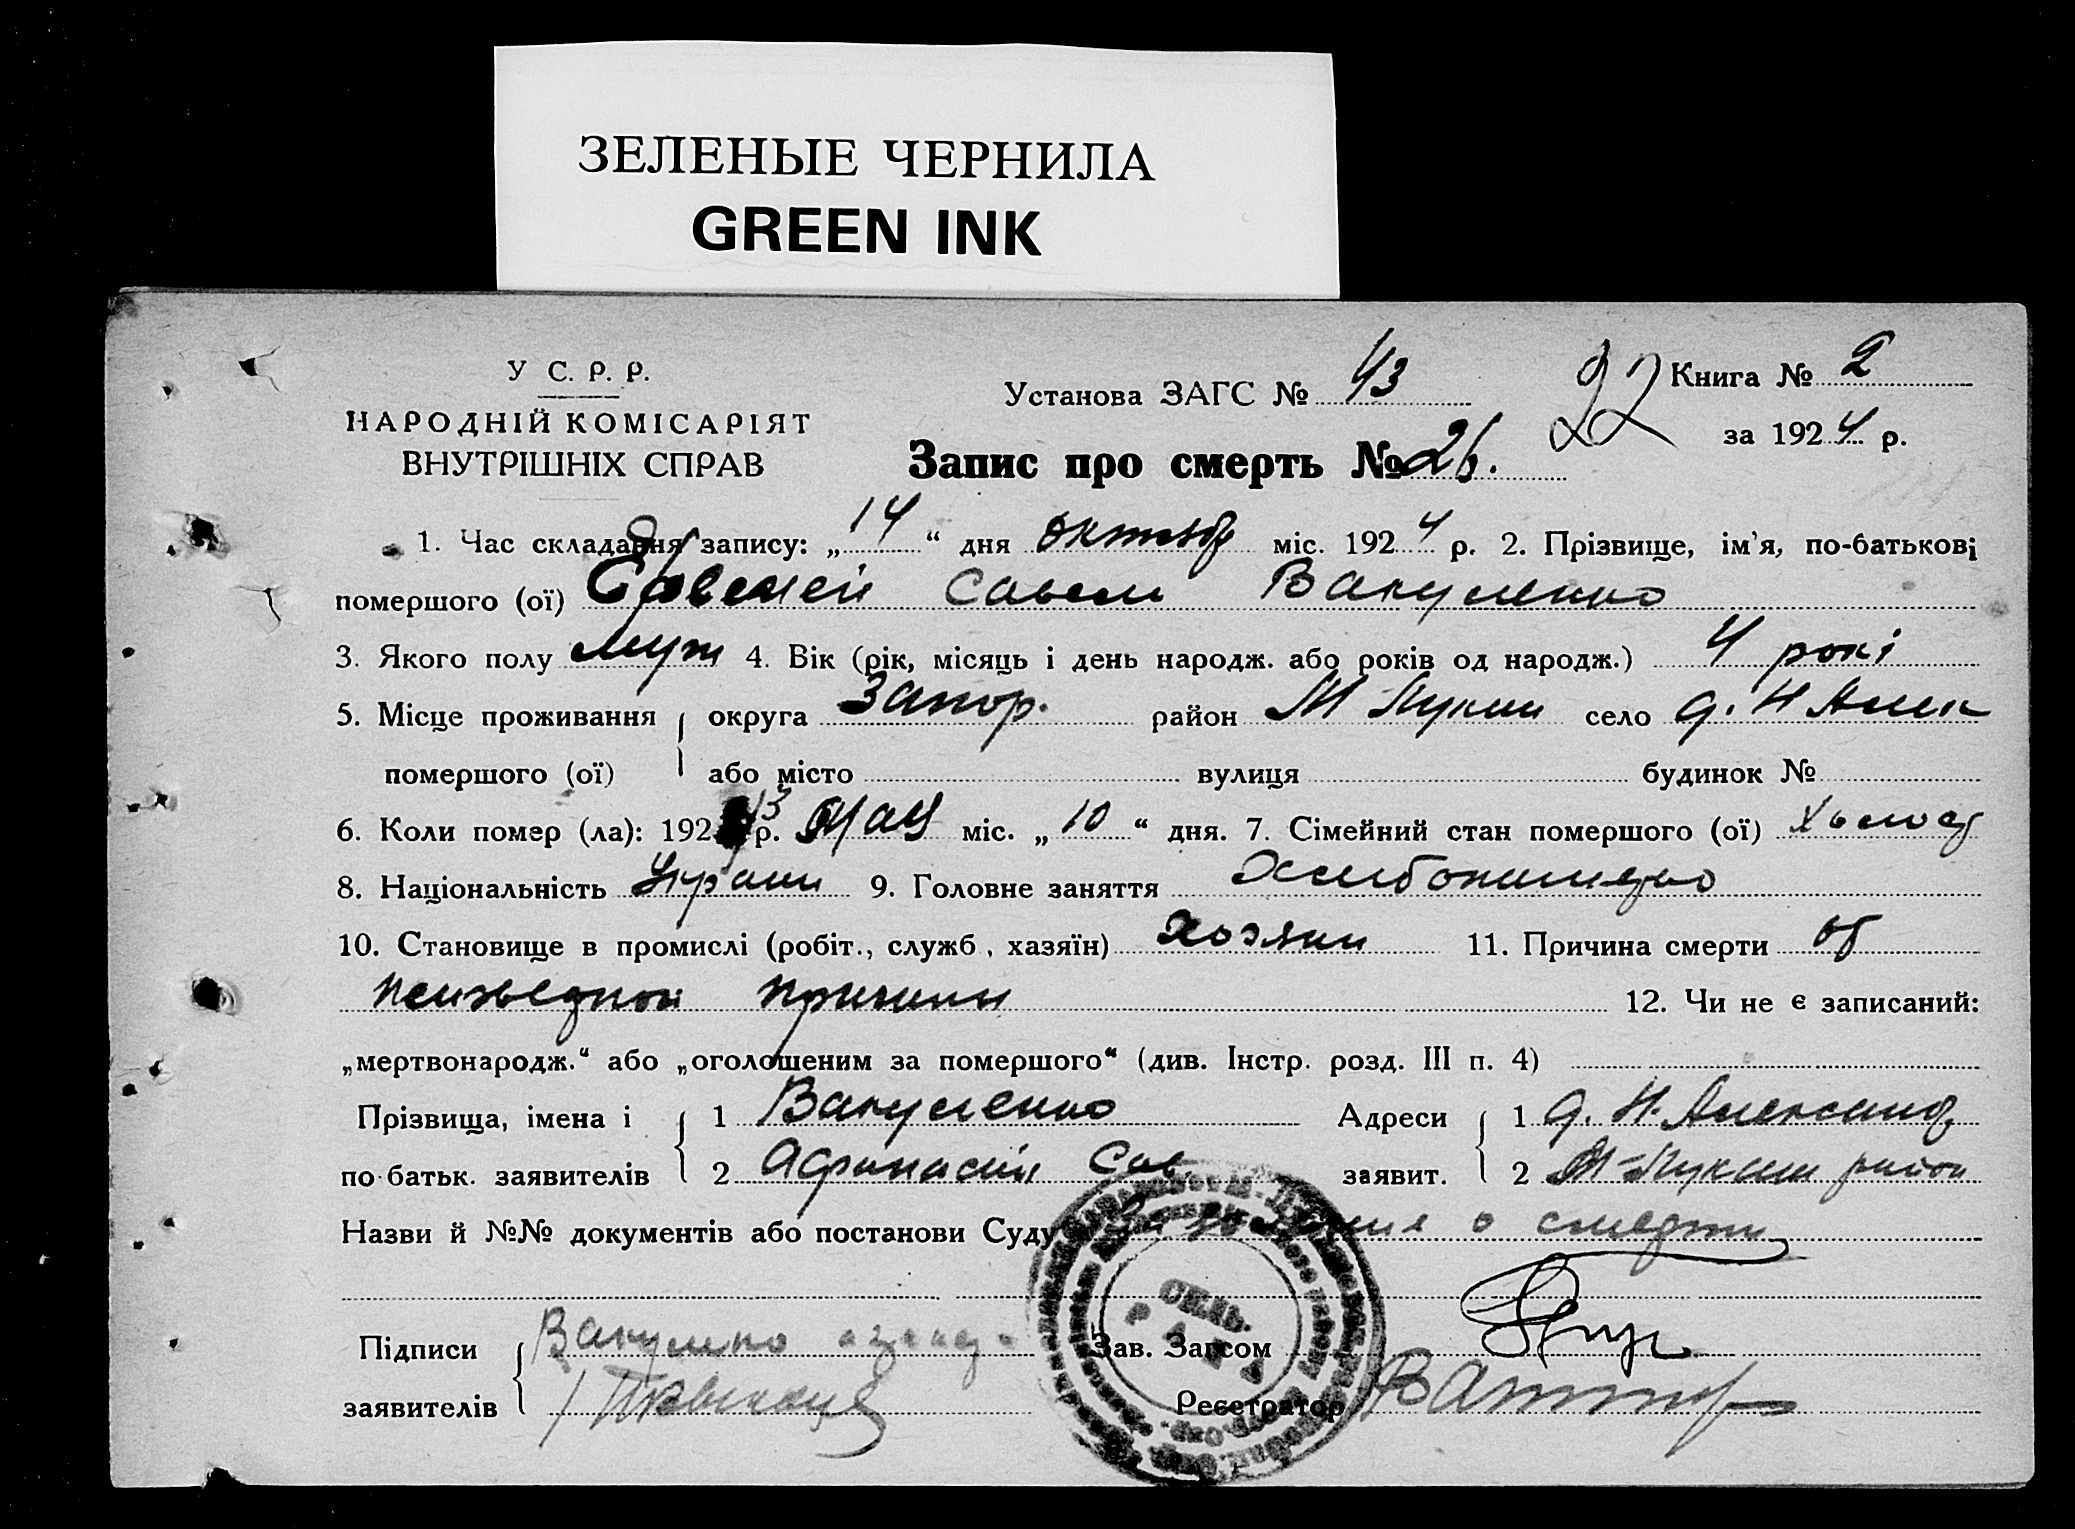 ЗЕЛЕНЫЕ ЧЕРНИЛА
GREEN INK
У С. Р. Р.
НАРОДНІЙ КОМІСАРІЯТ
ВНУТРІШНІХ СПРАВ
Установа ЗАГС № 43
22
Книга № 2
за 1924 р.
Запис про смерть № 26.
1. Час складання запису: „14“ дня октябр міс. 1924 р. 2. Прізвище, ім'я, по-батькові
помершого (ої) Савел Вакуленко
3. Якого полу муж 4. Вік (рік, місяць і день народж. або років од народж.) 4 рокі
5. Місце проживання округа Запор. район М село д. Н Алек
помершого (ої) або місто вулиця будинок №
6. Коли помер (ла): 1923 р. мая міс. „10“ дня. 7. Сімейний стан помершого (ої) холост
8. Національність Украин 9. Головне заняття
10. Становище в промислі (робіт., служб., хазяїн) хозяин 11. Причина смерти от
неизвестной причины 12. Чи не є записаний:
„мертвонародж.“ або „оголошеним за помершого“ (див. Інстр. розд. III п. 4)
Прізвища, імена і 1 Вакуленко Адреси 1 д. Н. Александ
по-батьк. заявителів 2 Афанасий Сав. заявит. 2 район
Назви й №№ документів або постанови Суду о смерти
СІЛЬ.
РАДА
Підписи Вакуленко Зав. Загсом
заявителів Реєстратор